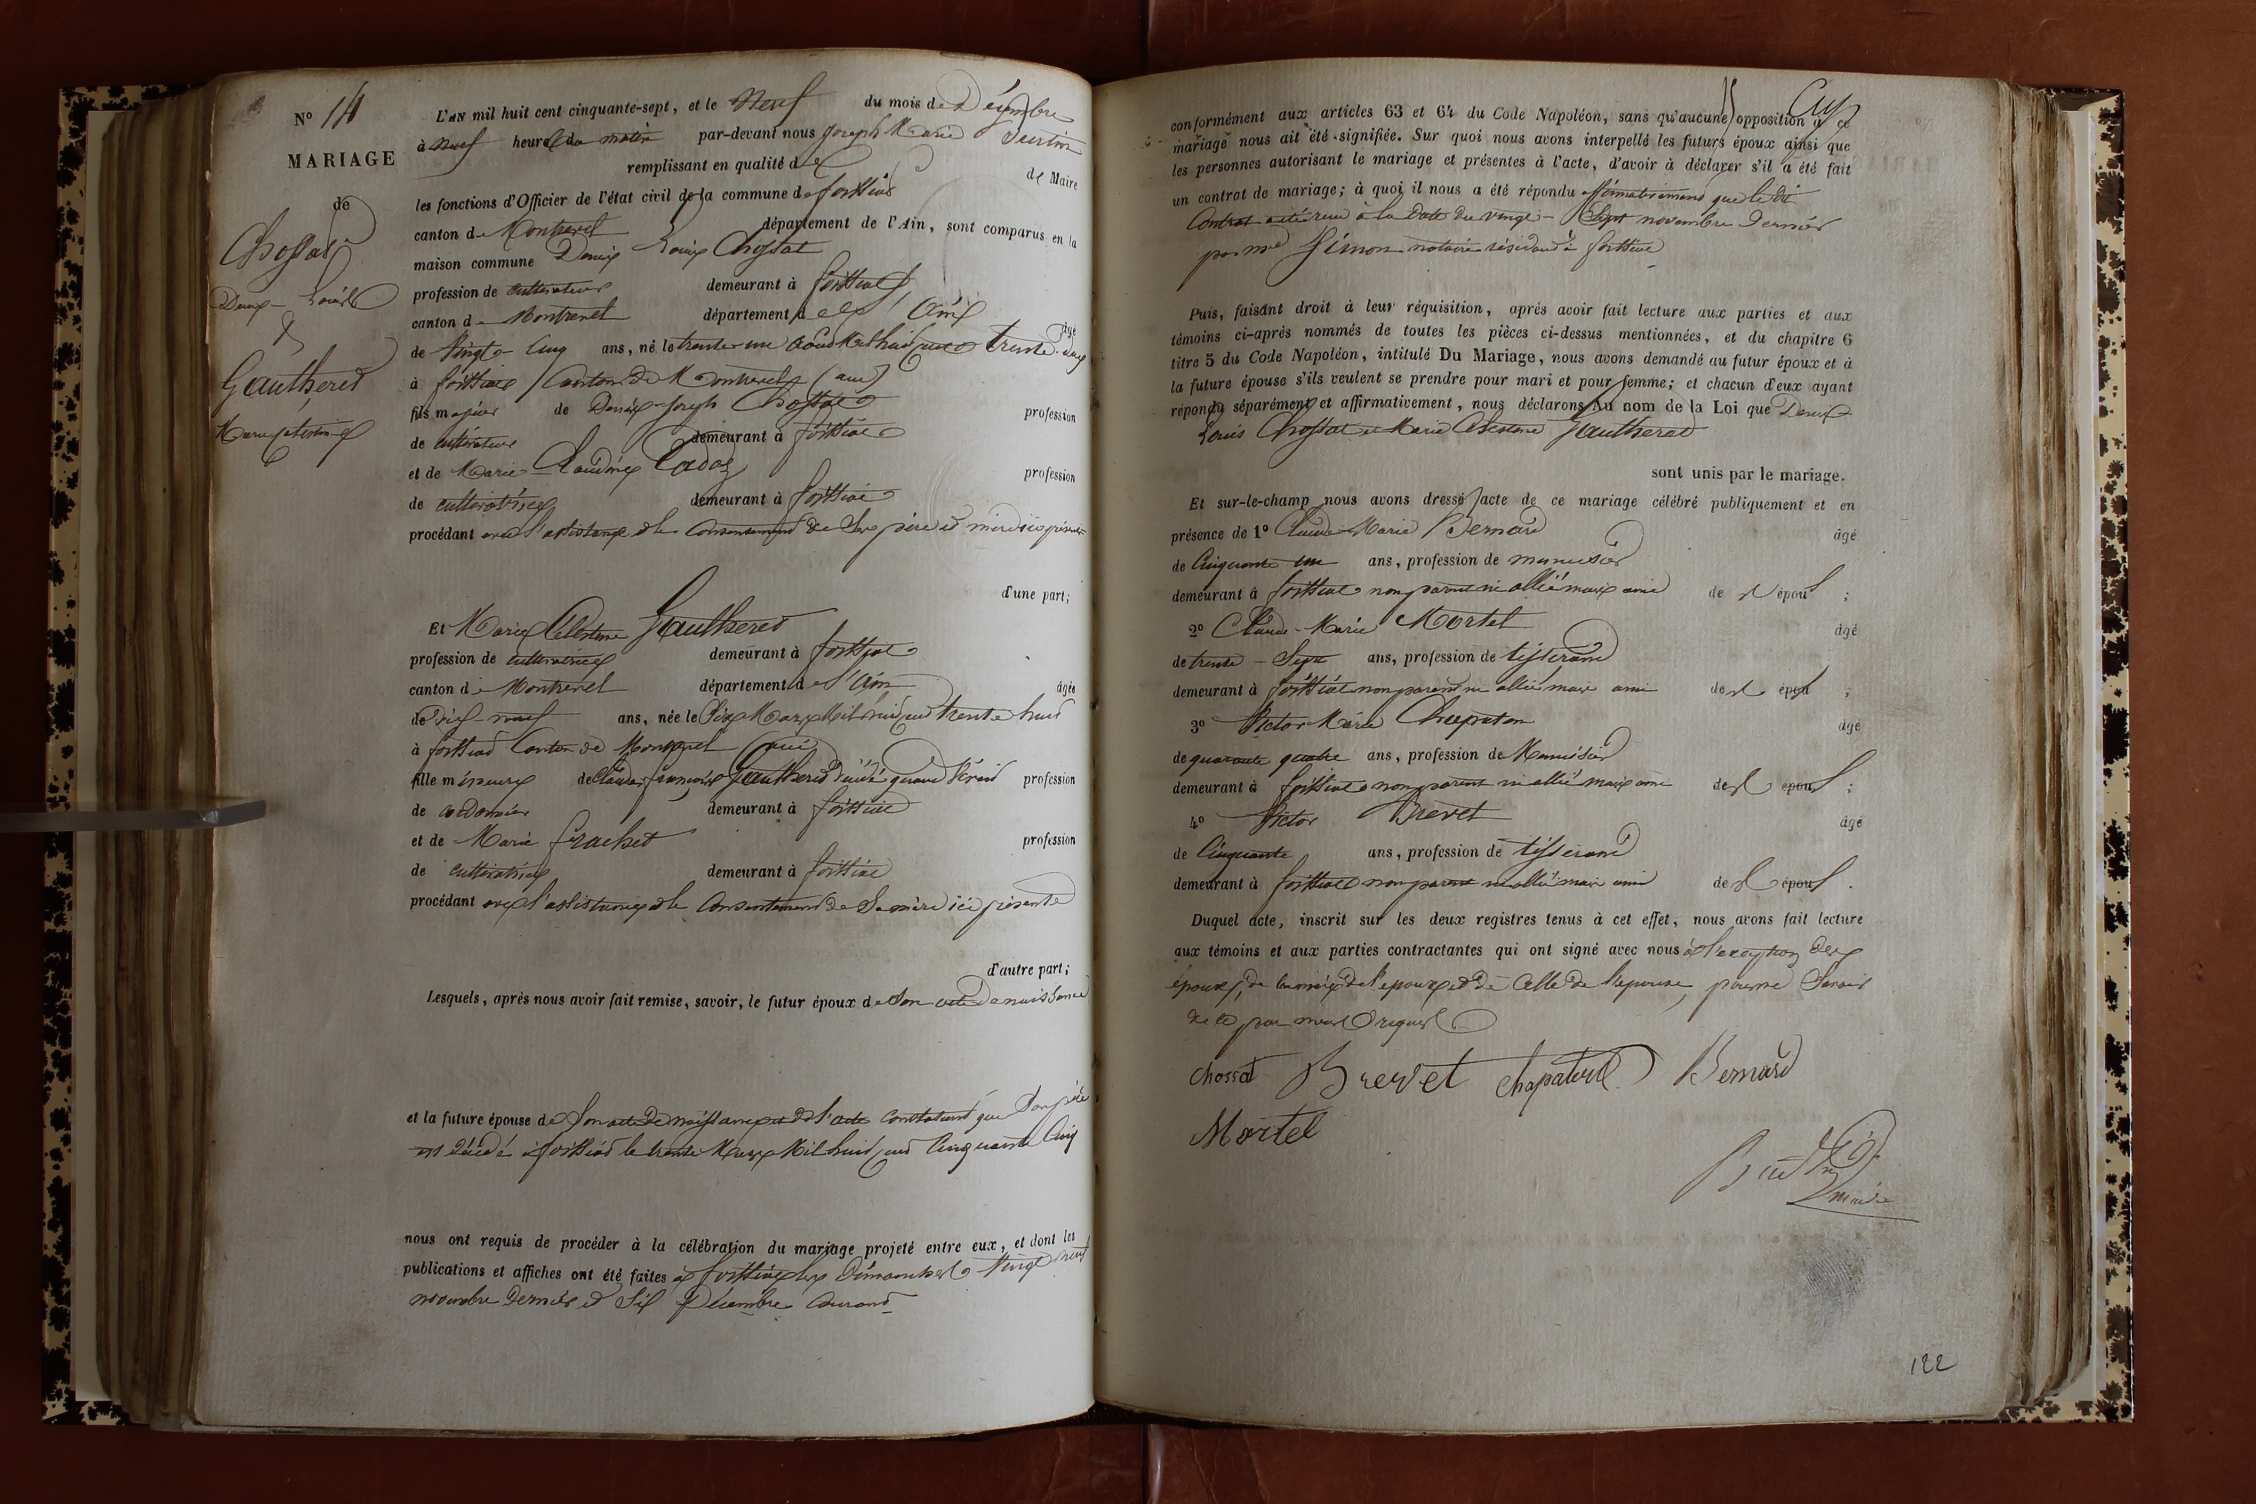 N° 14
MARIAGE
de
Chossat
Denis Louis
&
Gautheret
Marie Célestine
L'AN mil huit cent cinquante-sept, et le Neuf du mois de Décembre
à neuf heures du matin par-devant nous Joseph Marie
remplissant en qualité de de Maire
les fonctions d'Officier de l'état civil de la commune de foissiat
canton de Montrevel département de l'Ain, sont comparus en la
maison commune Denis Louis Chossat
profession de cultivateur demeurant à foissiat
canton de Montrevel département de l'Ain âgé
de Vingt-Cinq ans, né le trente un août Mil huit cent trente deux
à foissiat Canton de Montrevel (ain)
fils majeur de Denis-Joseph Chossat profession
de cultivateur demeurant à foissiat
et de Marie Claudine profession
de cultivatrice demeurant à foissiat
procédant avec l'assistance et le Consentement de Ses père et mère ici présents
d'une part;
Et Marie Célestine Gautheret
profession de cultivatrice demeurant à foissiat
canton de Montrevel département de l'Ain âgée
de Dix neuf ans, née le Six Mars Mil huit cent trente huit
à foissiat Canton de Montrevel (ain)
fille mineure de Claude françois Gautheret Décédé quand vivait profession
de cordonnier demeurant à foissiat
et de Marie frachet profession
de cultivatrice demeurant à foissiat
procédant avec l'assistance et le Consentement de Sa mère ici présente
d'autre part;
Lesquels, après nous avoir fait remise, savoir, le futur époux de Son acte De naissance
et la future épouse de Son acte De naissance et de l'acte Constatant que Son père
est Décédé à foissiat le trente Mars Mil huit cent Cinquante Cinq
nous ont requis de procéder à la célébration du mariage projeté entre eux, et dont les
publications et affiches ont été faites à foissiat les Dimanches Vingt neuf
novembre Dernier et Six Décembre Courant
conformément aux articles 63 et 64 du Code Napoléon, sans qu'aucune opposition à ce
mariage nous ait été signifiée. Sur quoi nous avons interpellé les futurs époux ainsi que
les personnes autorisant le mariage et présentes à l'acte, d'avoir à déclarer s'il a été fait
un contrat de mariage; à quoi il nous a été répondu affirmativement que le dit
Contrat a été reçu à la Date du vingt-Sept novembre Dernier
par me Simon notaire résidant à foissiat
Puis, faisant droit à leur réquisition, après avoir fait lecture aux parties et aux
témoins ci-après nommés de toutes les pièces ci-dessus mentionnées, et du chapitre 6
titre 5 du Code Napoléon, intitulé Du Mariage, nous avons demandé au futur époux et à
la future épouse s'ils veulent se prendre pour mari et pour femme; et chacun d'eux ayant
répondu séparément et affirmativement, nous déclarons Au nom de la Loi que Denis
Louis Chossat et Marie Célestine Gautheret
sont unis par le mariage.
Et sur-le-champ nous avons dressé acte de ce mariage célébré publiquement et en
présence de 1° Claude-Marie Bernard âgé
de Cinquante un ans, profession de menuisier
demeurant à foissiat non parent ni allié mais ami de l'époux ;
2° Claude-Marie Mortel âgé
de trente-Sept ans, profession de tisserand
demeurant à foissiat non parent ni allié mais ami de l'époux ;
3° Victor Marie Chapaton âgé
de quarante quatre ans, profession de Menuisier
demeurant à foissiat non parent ni allié mais ami de l'époux ;
4° Victor Brevet âgé
de Cinquante ans, profession de tisserand
demeurant à foissiat non parent ni allié mais ami de l'époux .
Duquel acte, inscrit sur les deux registres tenus à cet effet, nous avons fait lecture
aux témoins et aux parties contractantes qui ont signé avec nous à l'exception des
époux, de la mère de l'époux et de Celle de l'épouse, pour ne Savoir
de ce par nous requis
Chossat Brevet Chapaton Bernard
Mortel
maire
122